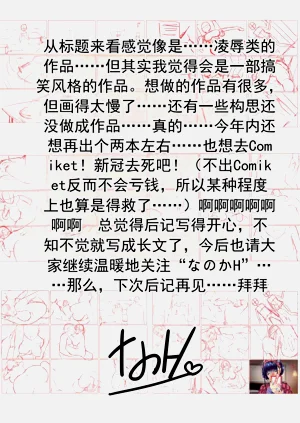 从标题来看感觉像是……凌辱类的
作品……但其实我觉得会是一部搞
笑风格的作品。想做的作品有很多,
但画得太慢了……还有一些构思还
没做成作品……真的……今年内还
想再出个两本左右……也想去Com
iket！新冠去死吧！（不出Comik
et反而不会亏钱，所以某种程度
上也算是得救了……）啊啊啊啊啊
啊啊　总觉得后记写得开心，不
知不觉就写成长文了，今后也请大
家继续温暖地关注“なのかH”…
…那么，下次后记再见……拜拜
なのかH♡